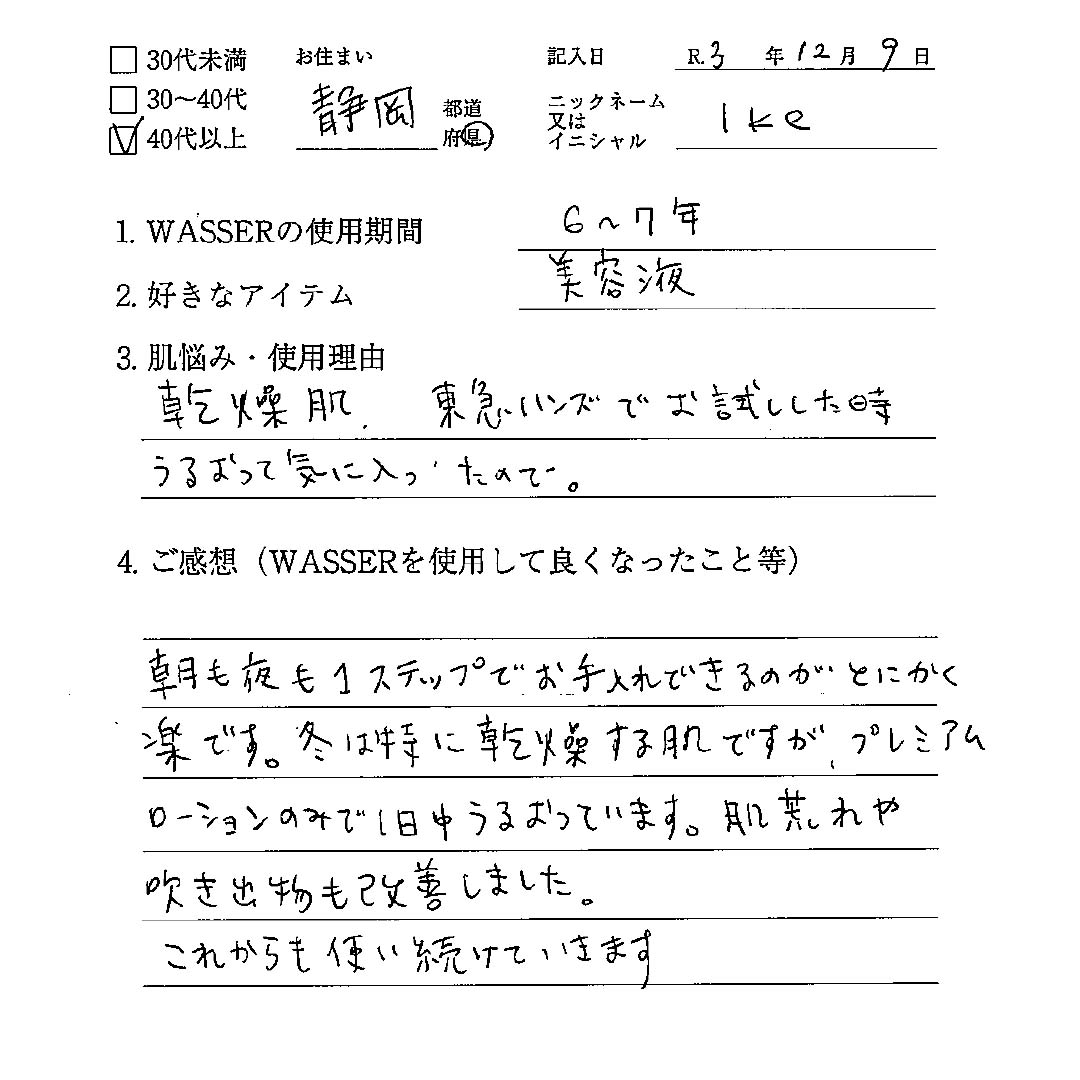 □ 30代未満 お住まい 記入日 R.3 年 12月 9日
□ 30〜40代 静岡 都道府県 ニックネーム又はイニシャル Ike
☑ 40代以上
1. WASSERの使用期間 6〜7年
2. 好きなアイテム 美容液
3. 肌悩み・使用理由
乾燥肌. 東急ハンズでお試しした時
うるおって気に入ったので。
4. ご感想（WASSERを使用して良くなったこと等）
朝も夜も1ステップでお手入れできるのがとにかく
楽です。冬は特に乾燥する肌ですが、プレミアム
ローションのみで1日中うるおっています。肌荒れや
吹き出物も改善しました。
これからも使い続けていきます